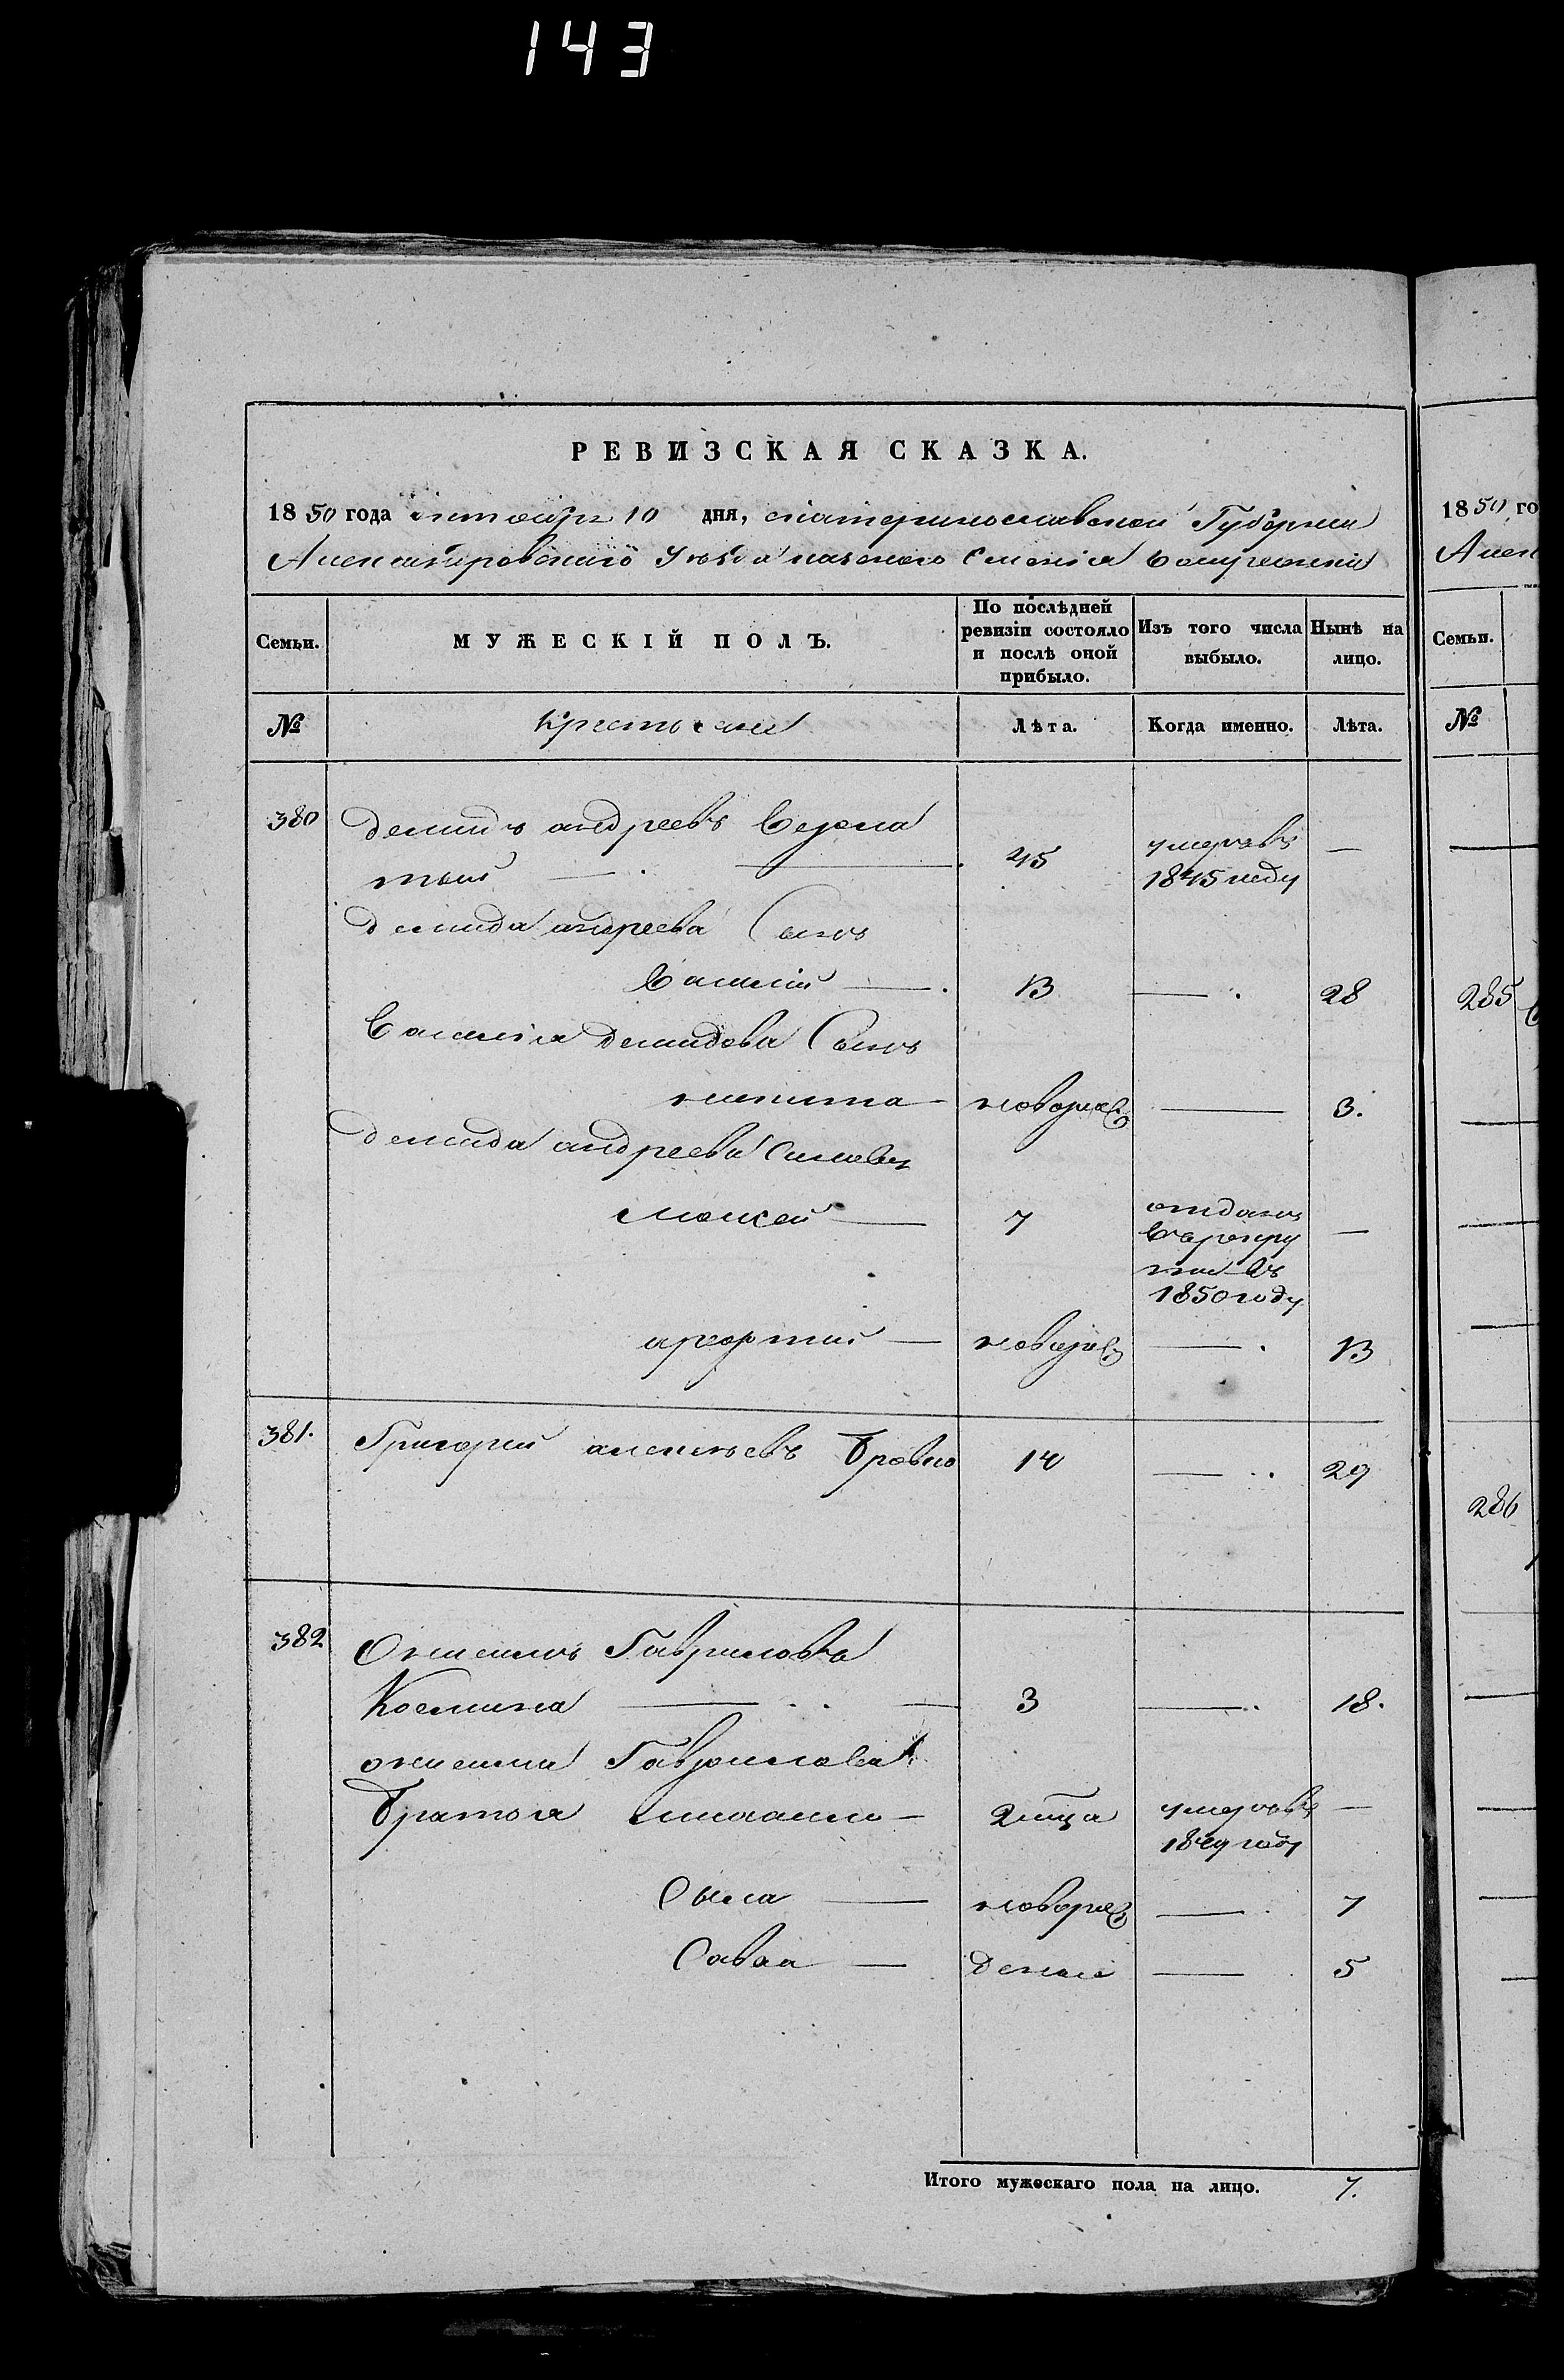 143
РЕВИЗСКАЯ СКАЗКА.
1850 года октября 10 дня, екатеринославской Губернии
Александровского Уезда казенного Селенія
Семьи. МУЖЕСКІЙ ПОЛЪ. По послѣдней ревизіи состояло и послѣ оной прибыло. Изъ того числа выбыло. Нынѣ на лицо.
№ Крестьяне Лѣта. Когда именно. Лѣта.
380 демидъ андреевъ
тый 45 умеръ въ 1845 году —
демида андреева Сынъ
Василій — 13 — 28
Василія демидова Сынъ
никита — новорож — 3.
демида андреева Синовья
моисей — 7 отданъ
в рекру
ты въ
1850 году —
арефтий — новорож — 13
381. Григорий алексеевъ бровко 14 — 29
382 Онисимъ Гавриловъ
Космина — 3 — 18.
онисима Гаврилова
братья — 2 мца умеръ въ —
1849 году
Сыса — новорож — 7
Савва — дение — 5
Итого мужескаго пола на лицо. 7.
1850 го
Алек
Семьи.
№
285
286